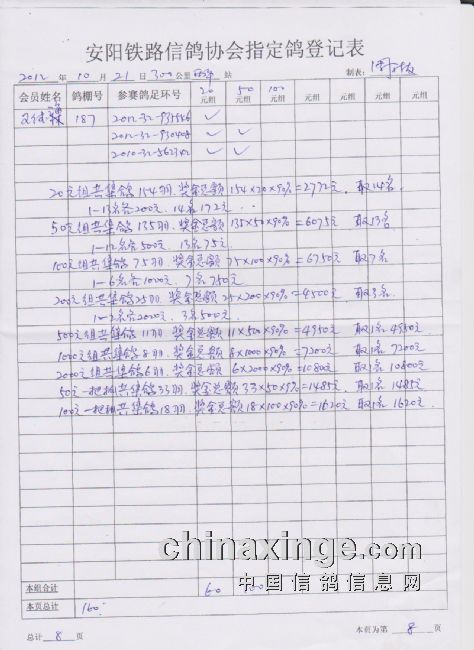 安阳铁路信鸽协会指定鸽登记表
2012 年 10 月 21 日 300 公里 站 制表:
会员姓名 鸽棚号 参赛鸽足环号 20元组 50元组 100元组 元组 元组 元组 元组
187 2012-32-935546 ✓
2012-32-930408 ✓ ✓
2010-32-562342 ✓ ✓
20元组共集鸽154羽.奖金总额154×20×90%=2772元. 取14名.
1-13名各200元. 14名172元...
50元组共集鸽135羽.奖金总额135×50×90%=6075元 取13名.
1-12名各500元. 13名75元.
100元组共集鸽75羽.奖金总额75×100×90%=6750元 取7名
1-6名各1000元. 7名750元
200元组共集鸽25羽.奖金总额25×200×90%=4500元. 取3名.
1-2名各2000元. 3名500元.
500元组共集鸽11羽.奖金总额11×500×90%=4950元 取1名4950元
1000元组共集鸽8羽.奖金总额8×1000×90%=7200元 取1名7200元
2000元组共集鸽6羽.奖金总额6×2000×90%=10800元. 取1名10800元
50元一把抓共集鸽33羽.奖金总额33×50×90%=1485元. 取1名1485元
100元一把抓共集鸽18羽.奖金总额18×100×90%=1620元 取1名1620元.
chinaxinge.com
中国信鸽信息网
本组合计 60 100
本页总计 160
总计 8 页 本页为第 8 页